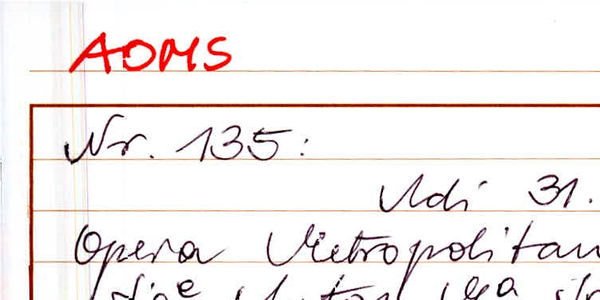 AOMS
Nr. 135:
Udi 31.
Opera Metropolitan